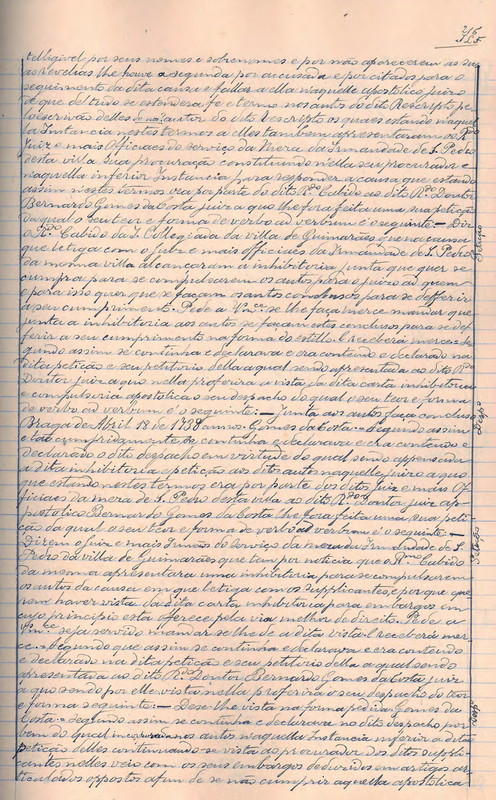 216
telligivel por seus nomes e sobrenomes e por não aparecerem as su-
as Revelias lhe houve a segunda por accusada e por citados para o
seguimento da dita causa e fallas a ella naquelle apostolico juizo
de que de tudo se estendera fé e termo nos autos do dito Rescripto pe-
lo escrivão delles do autor do dito Rescripto os quaes estando naquel-
la Instancia nestes termos a elles tambem apresentaram o Rdo
Juiz e mais Officiaes do serviço da Meza da Irmandade de S. Pedro
desta villa sua procuração constituindo nella seu procurador e
naquella inferior Instancia para responder a causa que estando
assim nestes termos veu por parte do dito Rdo Cabido ao dito Rdo Doutor
Bernardo Gomes da Costa juiz a quo lhe fora feita uma sua petição
da qual o seu teor e forma de verbo ad verbum é o seguinte:— Diz
o Cabido da I. Collegiada da villa de Guimarães que na causa
que letiga com o Juiz e mais officiaes da Irmandade de S. Pedro
da mesma villa alcançaram a inhibitoria junta que quer se
cumpra para se compulsarem os autos para o juizo ad quem
e para isso quer que se façam os autos conclusos para se defferir
a seu cumprimento. Pede a Vmce se lhe faça merce mandar que
junta a inhibitoria aos autos se façam estes conclusos para se def-
ferir a seu cumprimento na forma do estillo. E receberá merce. Se-
gundo assim se continha e declarava e era conteudo e declarado na
dita petição e seu petitorio della a qual sendo apresentada ao dito Rdo
Doutor juiz a quo nella proferira a vista da dita carta inhibitoria
e compulsoria apostolica o seu despacho do qual o seu teor e forma
de verbo ad verbum é o seguinte:— Junta aos autos faça concluso
Braga de Abril 18 de annos. Gomes da Costa.— Segundo assim
e tão cumpridamente se continha e declarava e era conteudo e
declarado o dito despacho em virtude do qual sendo appensada
a dita inhibitoria e petição aos ditos autos naquelle juizo a quo
que estando nestes termos era por parte dos ditos Juiz e mais Of-
ficiaes da meza de S. Pedro desta villa ao dito Rdo Doutor juiz ap-
postolico Bernardo Gomes da Costa lhe fora feita uma sua peti-
ção da qual o seu teor e forma de verbo ad verbum é o seguinte:—
Dizem o Juiz e mais Irmãos do serviço da meza da Irmandade de S.
Pedro da villa de Guimarães que tem por noticia que o Rmo Cabido
da mesma apresentara uma inhibitoria para se compulsarem
os autos da causa em que letiga com os Supplicantes, e porque que-
rem haver vista da dita carta inhibitoria para embargos em
cujo principio esta offerece pela via melhor de direito. Pede a
Vmce. seja servido mandar se lhe dê a dita vista. E receberá mer-
ce.— Segundo que assim se continha e declarava e era conteudo
e declarado na dita petição e seu petitorio della a qual sendo
apresentada ao dito Rdo Doutor Bernardo Gomes da Costa juiz
a quo sendo por elle vista nella proferira o seu despacho do teor
e forma seguinte:— Dese-lhe vista na forma pedida. Gomes da
Costa.— Segundo assim se continha e declarava no dito despacho por
bem do qual nos autos naquella Instancia inferior a dita
petição delles continuando-se vista ao procurador dos ditos suppli-
cantes nelles veio com os seus embargos deduzidos em artigos ar-
ticulados oppostos afim de se não cumprir aquella apostolica
Petição
Despo
Petição
Despo